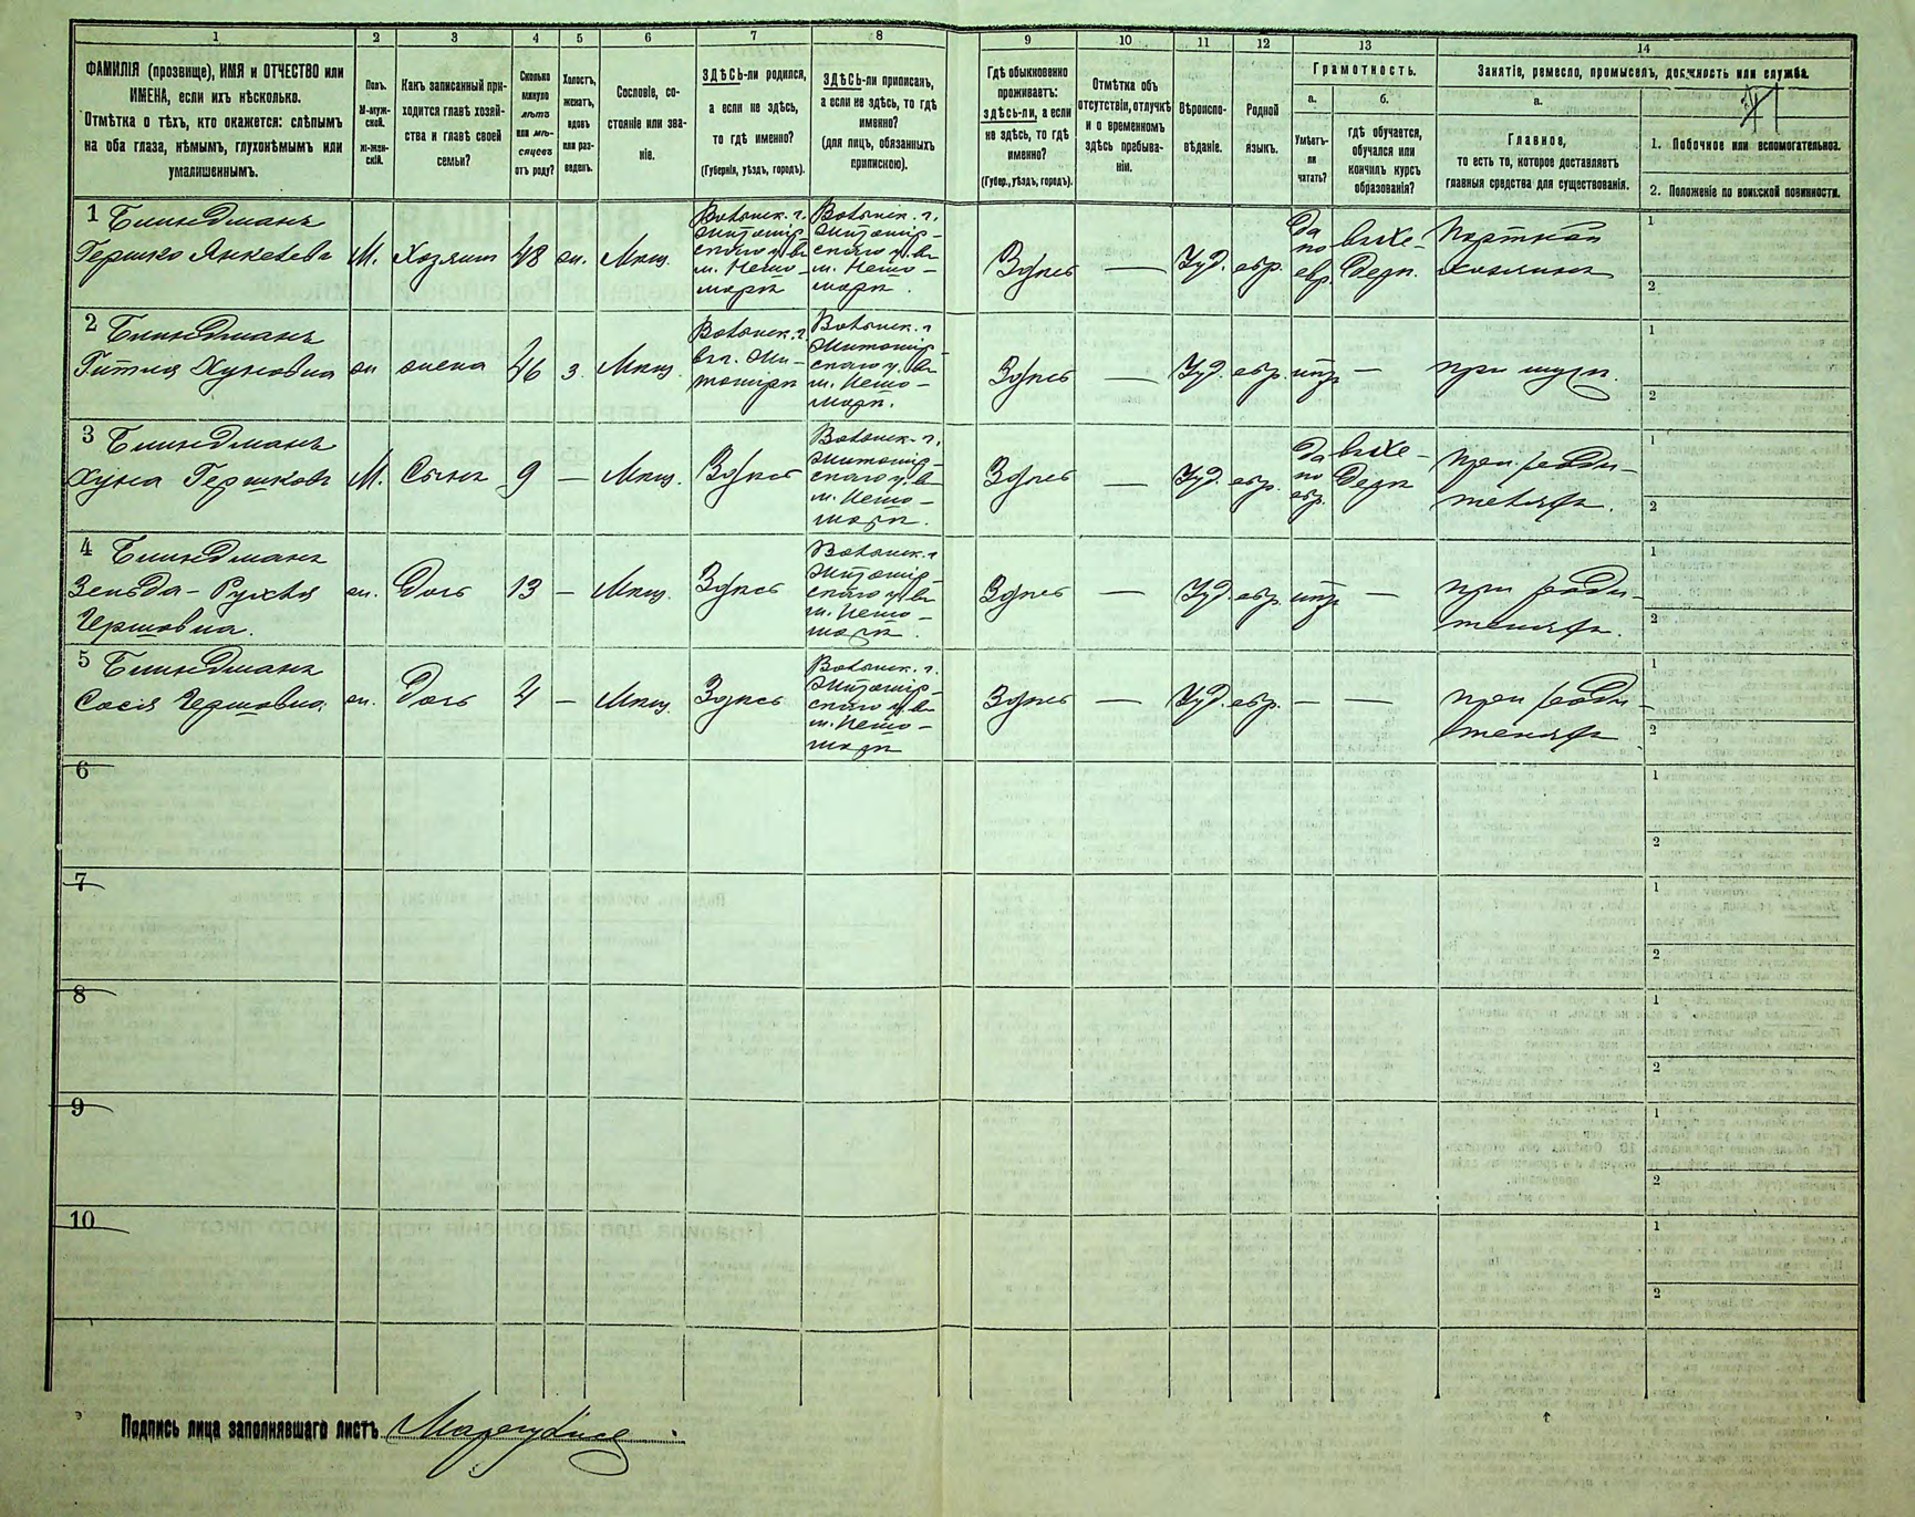 1 2 3 4 5 6 7 8 9 10 11 12 13 14
ФАМИЛІЯ (прозвище), ИМЯ и ОТЧЕСТВО или
ИМЕНА, если ихъ нѣсколько.
Отмѣтка о тѣхъ, кто окажется: слѣпымъ
на оба глаза, нѣмымъ, глухонѣмымъ или
умалишеннымъ.
Полъ.
М-муж-
ской.
Ж-жен-
скій.
Какъ записанный при-
ходится главѣ хозяй-
ства и главѣ своей
семьи?
Сколько
минуло
лѣтъ
или мѣ-
сяцевъ
отъ роду?
Холостъ,
женатъ,
вдовъ
или раз-
веденъ.
Сословіе, со-
стояніе или зва-
ніе.
ЗДѢСЬ-ли родился,
а если не здѣсь,
то гдѣ именно?
(Губернія, уѣздъ, городъ).
ЗДѢСЬ-ли приписанъ,
а если не здѣсь, то гдѣ
именно?
(для лицъ, обязанныхъ
припискою).
Гдѣ обыкновенно
проживаетъ:
здѣсь-ли, а если
не здѣсь, то гдѣ
именно?
(Губер., уѣздъ, городъ).
Отмѣтка объ
отсутствіи, отлучкѣ
и о временномъ
здѣсь пребыва-
ніи.
Вѣроиспо-
вѣданіе.
Родной
языкъ.
Грамотность.
а.
Умѣетъ-
ли
читать?
б.
гдѣ обучается,
обучался или
кончилъ курсъ
образованія?
Занятіе, ремесло, промыселъ, должность или служба.
а.
Главное,
то есть то, которое доставляетъ
главныя средства для существованія.
1. Побочное или вспомогательное.
2. Положеніе по воинской повинности.
1 Блиндманъ
Гершко Янкелевъ М. Хозяин 48 ж. Мѣщ.
Волынск. г.
Житомир-
скаго у. въ
Волынск. г.
Житомир-
скаго у. въ
Здѣсь — Іуд. евр.
да
по
евр.
Портной
хозяинъ
1
2
2 Блиндманъ
Гитля Хуновна ж жена 46 з. Мѣщ.
Волынск. г.
въ г. Жи-
томирѣ
Волынск. г.
Житомир-
скаго у. въ
Здѣсь — Іуд. евр. нѣтъ — при мужѣ.
1
2
3 Блиндманъ
Хуна Гершковъ М. Сынъ 9 — Мѣщ. Здѣсь
Волынск. г.
Житомир-
скаго у. въ
Здѣсь — Іуд. евр.
да
по
евр.
при роди-
теляхъ.
1
2
4 Блиндманъ
Зельда-Рухля ж. Дочь 13 — Мѣщ. Здѣсь
Гершовна.
Волынск. г.
Житомир-
скаго у. въ
Здѣсь — Іуд. евр. нѣтъ —
при роди-
теляхъ.
1
2
5 Блиндманъ
Сося Гершовна ж. Дочь 4 — Мѣщ. Здѣсь
Волынск. г.
Житомир-
скаго у. въ
Здѣсь — Іуд. евр. — —
при роди-
теляхъ
1
2
6
1
2
7
1
2
8
1
2
9
1
2
10
1
2
Подпись лица заполнявшаго листъ